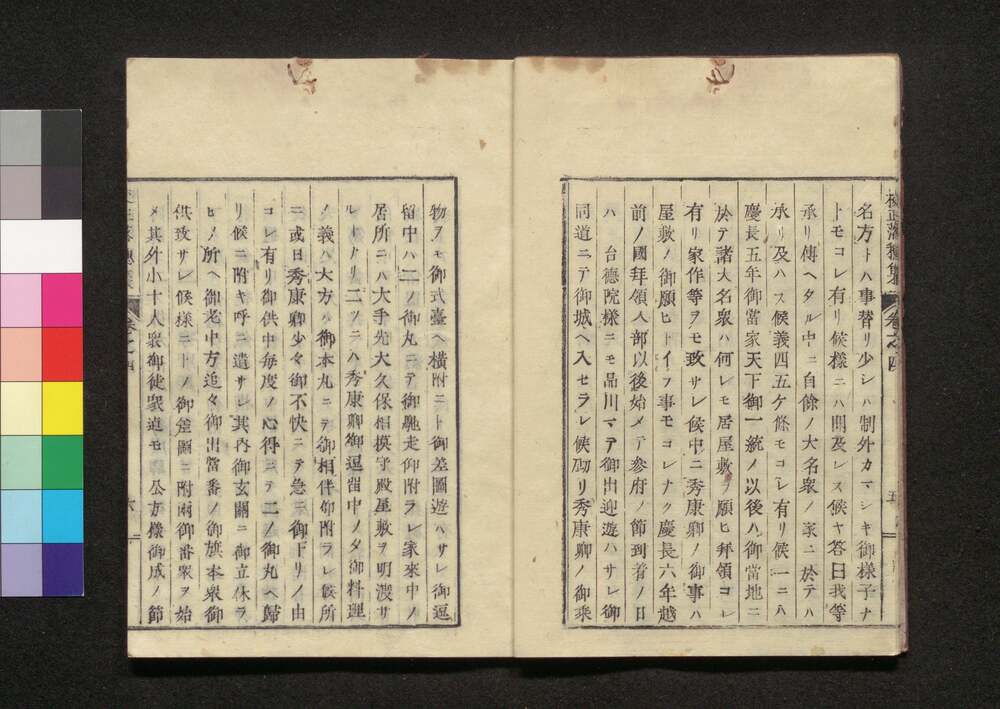 校正落穂集 卷之四 五
名方トハ事替リ少シハ制外カマシキ御樣子ナ
トモコレ有リ候樣ニハ聞及レス候ヤ答曰我等
承リ傳ヘタル中ニ自餘ノ大名衆ノ家ニ於テハ
承リ及ハス候義四五ケ條モコレ有リ候一ニハ
慶長五年御當家天下御一統ノ以後ハ御當地ニ
於テ諸大名衆ハ何レモ居屋敷ヲ願ヒ拜領コレ
有リ家作等ヲモ致サレ候中ニ秀康卿ノ御事ハ
屋敷ノ御願ヒトイフ事モコレナク慶長六年越
前ノ國拜領入部以後始メテ參府ノ節到着ノ日
ハ 台德院樣ニモ品川マテ御出迎遊ハサレ御
同道ニテ御城ヘ入セラレ候砌リ秀康卿ノ御乘
物ヲモ御式臺ヘ横附ニト御差圖遊ハサレ御逗
留中ハ二ノ御丸ニテ御馳走仰附ラレ家來中ノ
居所ニハ大手先大久保相模守殿屋敷ヲ明渡サ
レ候ナリ二ツニハ秀康卿御逗留中ノ夕御料理
ノ義ハ大方ハ御本丸ニテ御相伴仰附ラレ候所
ニ或日秀康卿少々御不快ニテ急ニ御下リノ由
コレ有リ御供中每度ノ心得ニテ二ノ御丸ヘ歸
リ候ニ附キ呼ニ遣サレ其内御玄關ニ御立休ラ
ヒノ所ヘ御老中方追々御出當番ノ御旗本衆御
供致サレ候樣ニトノ御差圖ニ附兩御番衆ヲ始
メ其外小十人衆御徒衆迄モ 公方樣御成ノ節
卷之四 六